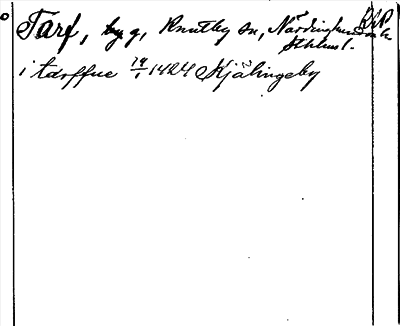 Tarf, by g, Knutby sn, Närdinghundra
Sthlms l.
i tarffue 19/1 1424 Skjälingeby